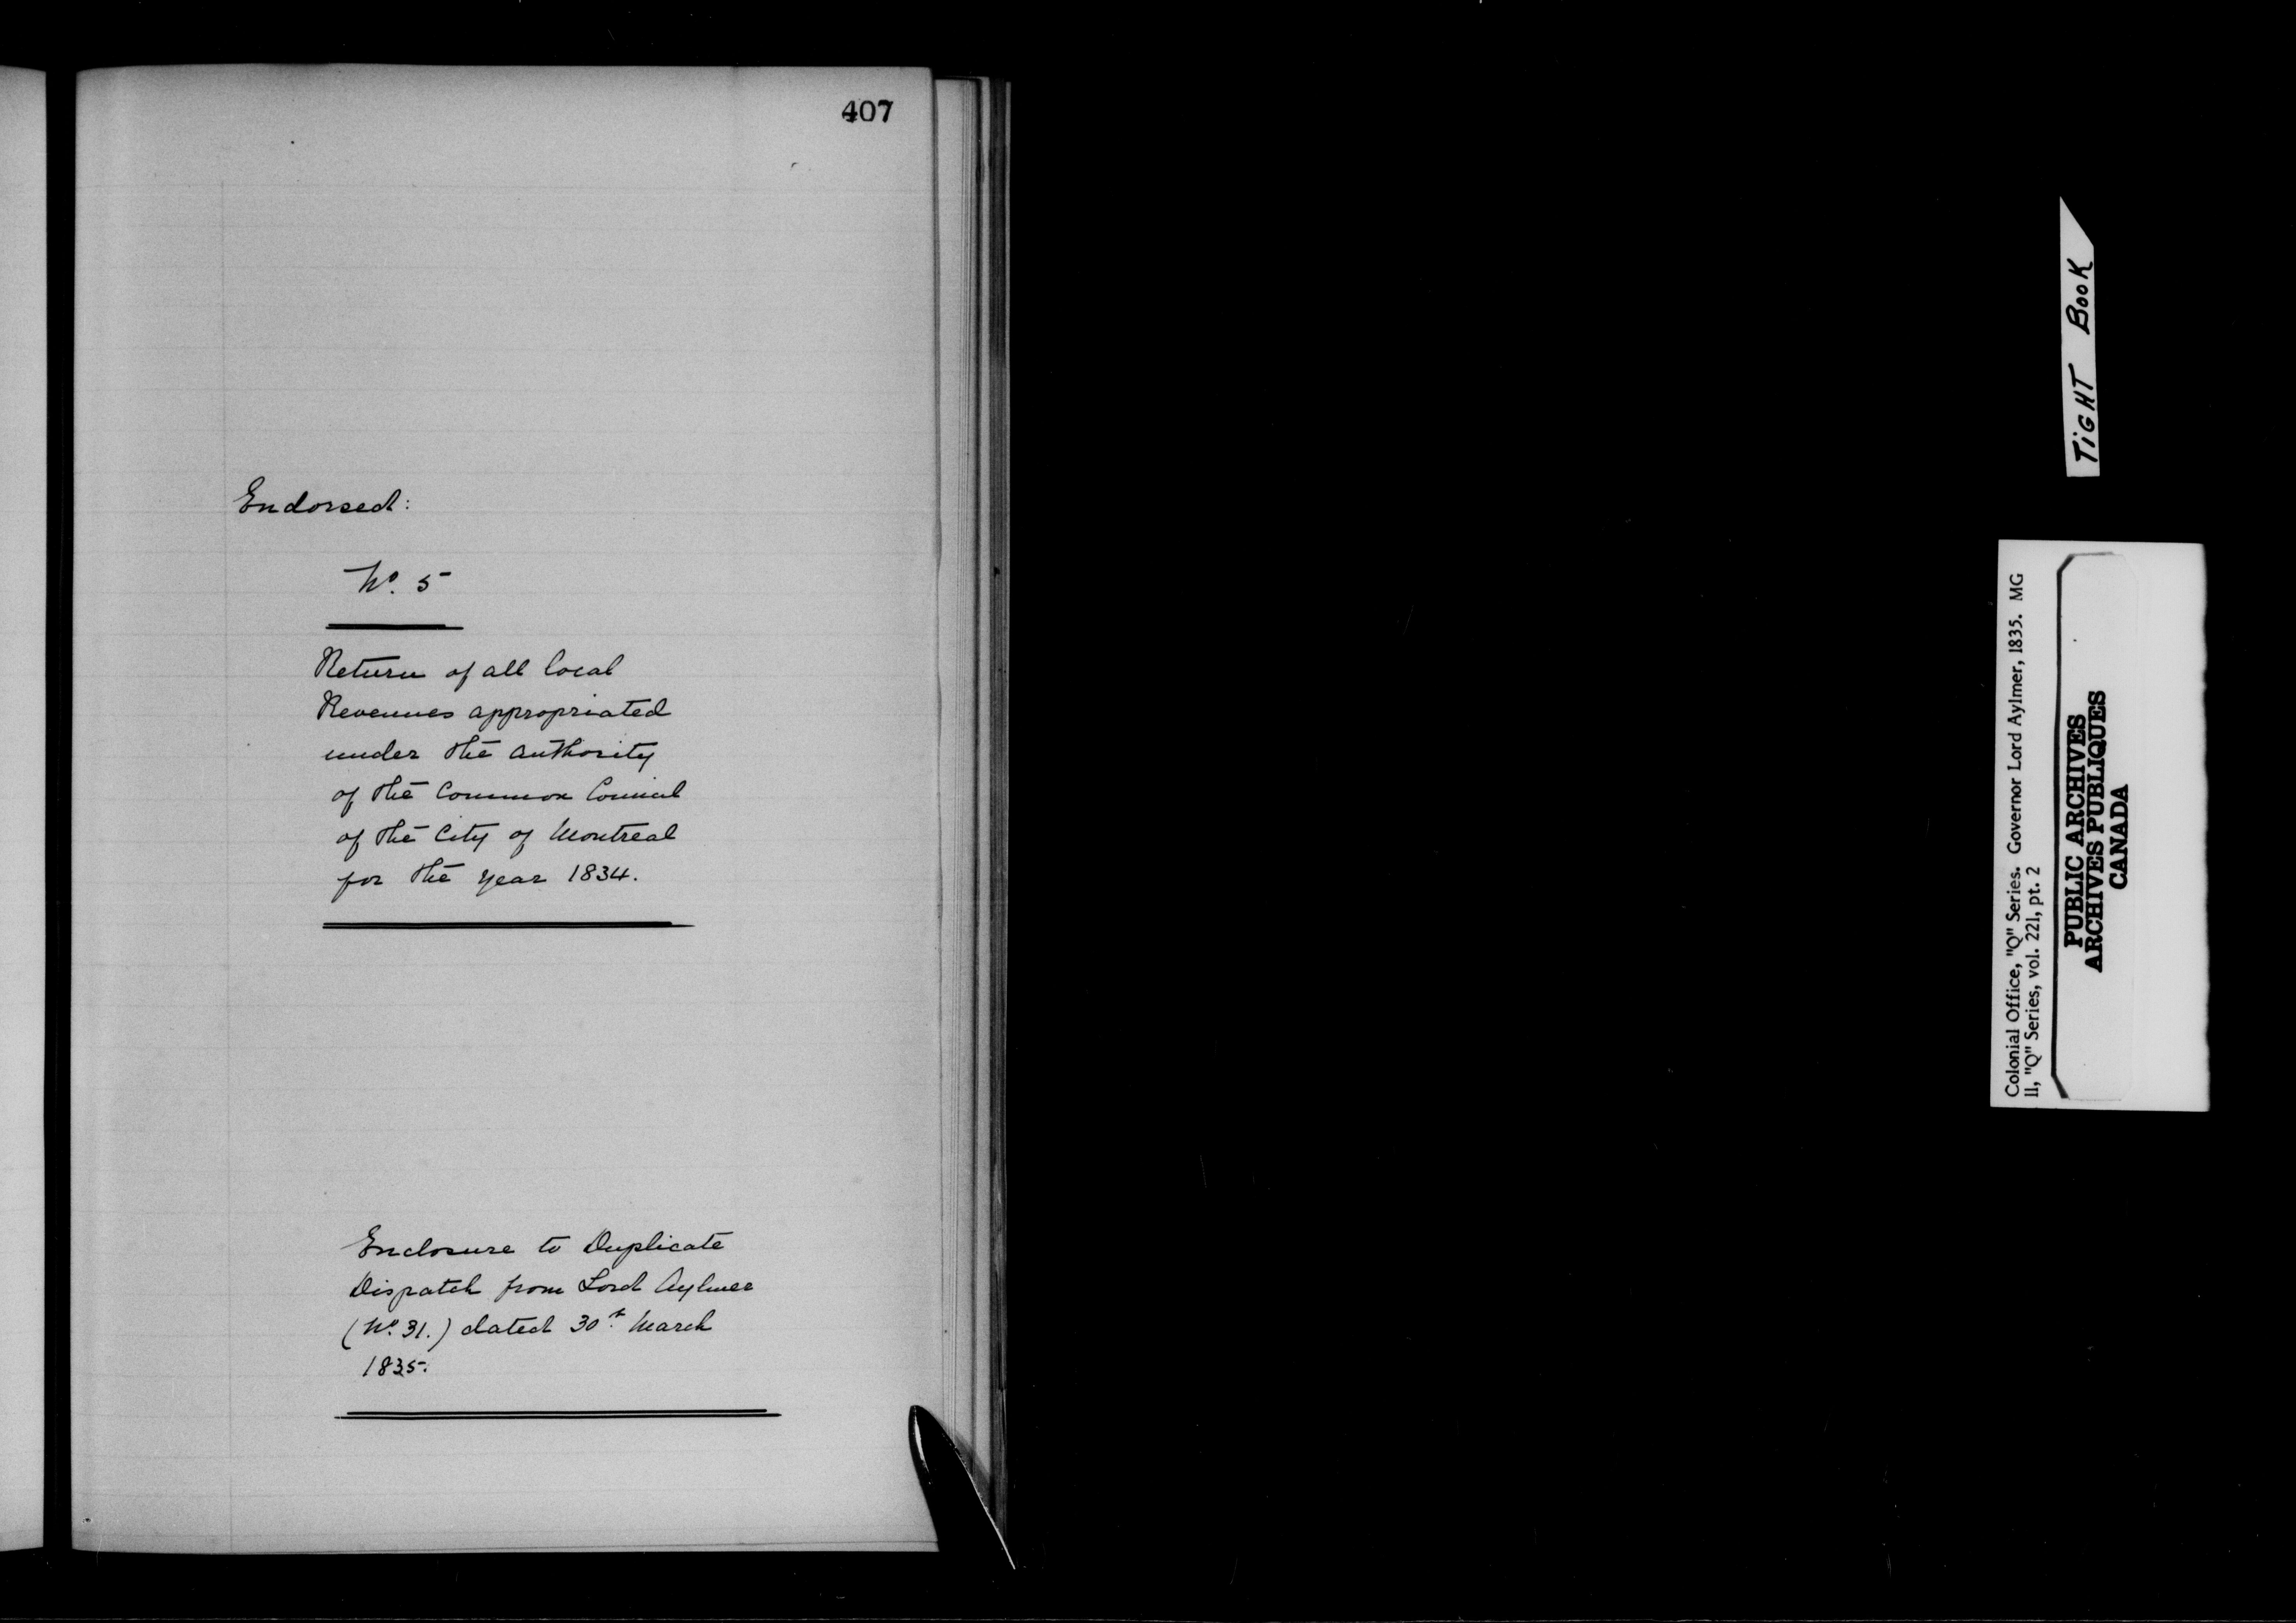 407
Endorsed:
No. 5
Return of all local
Revenues appropriated
under the authority
of the Common Council
of the City of Montreal
for the year 1834.
Enclosure to Duplicate
Dispatch from Lord Aylmer
(No. 31.) dated 30th March
1835.
TIGHT BOOK
Colonial Office, "Q" Series. Governor Lord Aylmer, 1835. MG
11, "Q" Series, vol. 221, pt. 2
PUBLIC ARCHIVES
ARCHIVES PUBLIQUES
CANADA